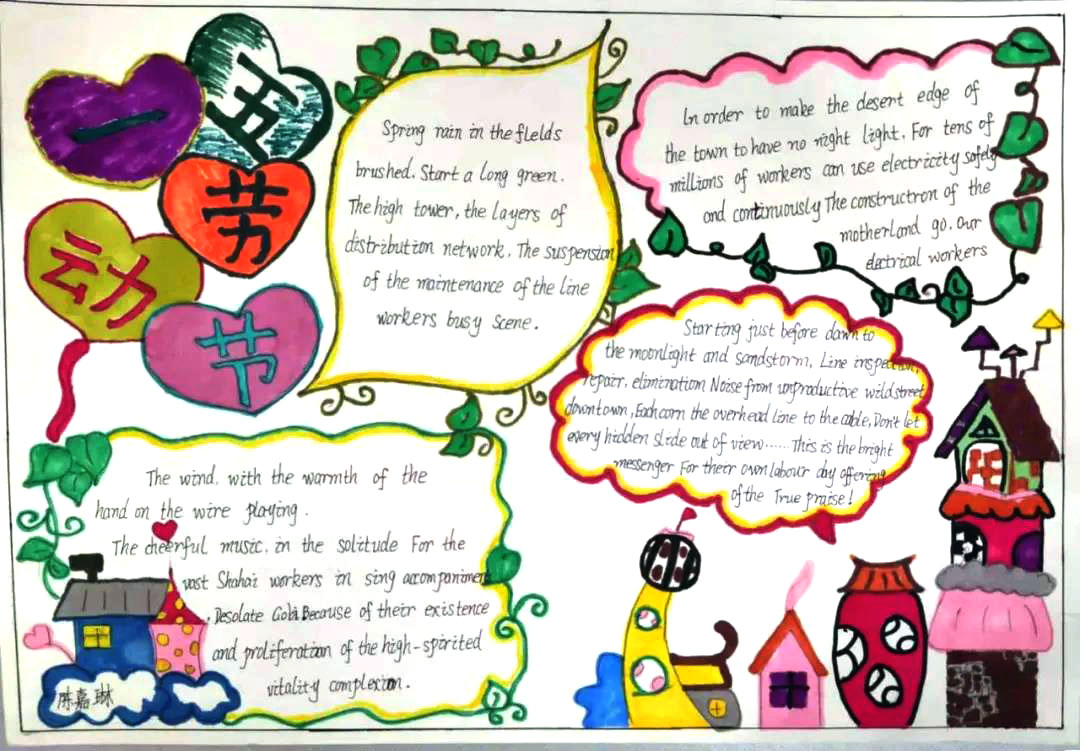 一
五
劳
动
节
Spring rain in the fields
brushed. Start a long green.
The high tower, the layers of
distribution network. The suspension
of the maintenance of the line
workers busy scene.
In order to make the desert edge of
the town to have no night light. For tens of
millions of workers can use electricity safely
and continuously The constructron of the
motherland go. Our
electrical workers
Starting just before dawn to
the moonlight and sandstorm, Line inspection,
repair, elimination Noise from unproductive wild street
downtown, Each corn the overhead line to the cable, Don't let
every hidden slide out of view...... This is the bright
messenger For their own labour day offering
of the True praise!
The wind, with the warmth of the
hand on the wire playing.
The cheerful music, in the solitude For the
vast Shahai workers in sing accompaniment
, Desolate Gobi Because of their existence
and proliferation of the high-spirited
vitality complexion.
陈嘉琳